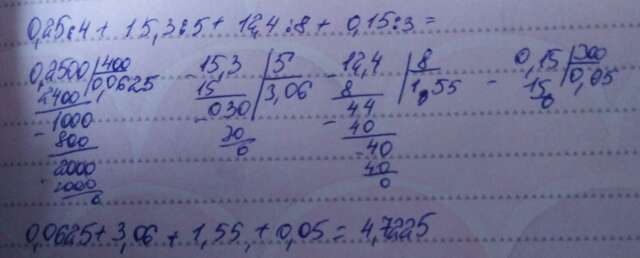 0,25:4 + 15,3:5 + 12,4:8 + 0,15:3 =
0,2500 400 - 15,3 5 - 12,4 8 0,15 300
2400 0,0625 15 3,06 8 1,55 - 15 0,05
1000 - 030 44 0
- 800 30 - 40
2000 0 - 40
- 2000 40
0 0
0,0625 + 3,06 + 1,55 + 0,05 = 4,7225